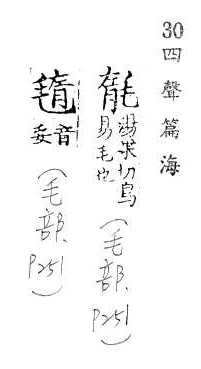 30四聲篇海
毻湯果切鳥
易毛也
(毛部P251)
音
(毛部P251)